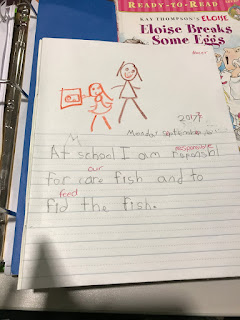 READY-TO-READ
KAY THOMPSON'S ELOISE
Eloise Breaks
Some Eggs
2017
Monday September
responsible
At school I am reponsbl
our
for care fish and to
feed
fid the fish.